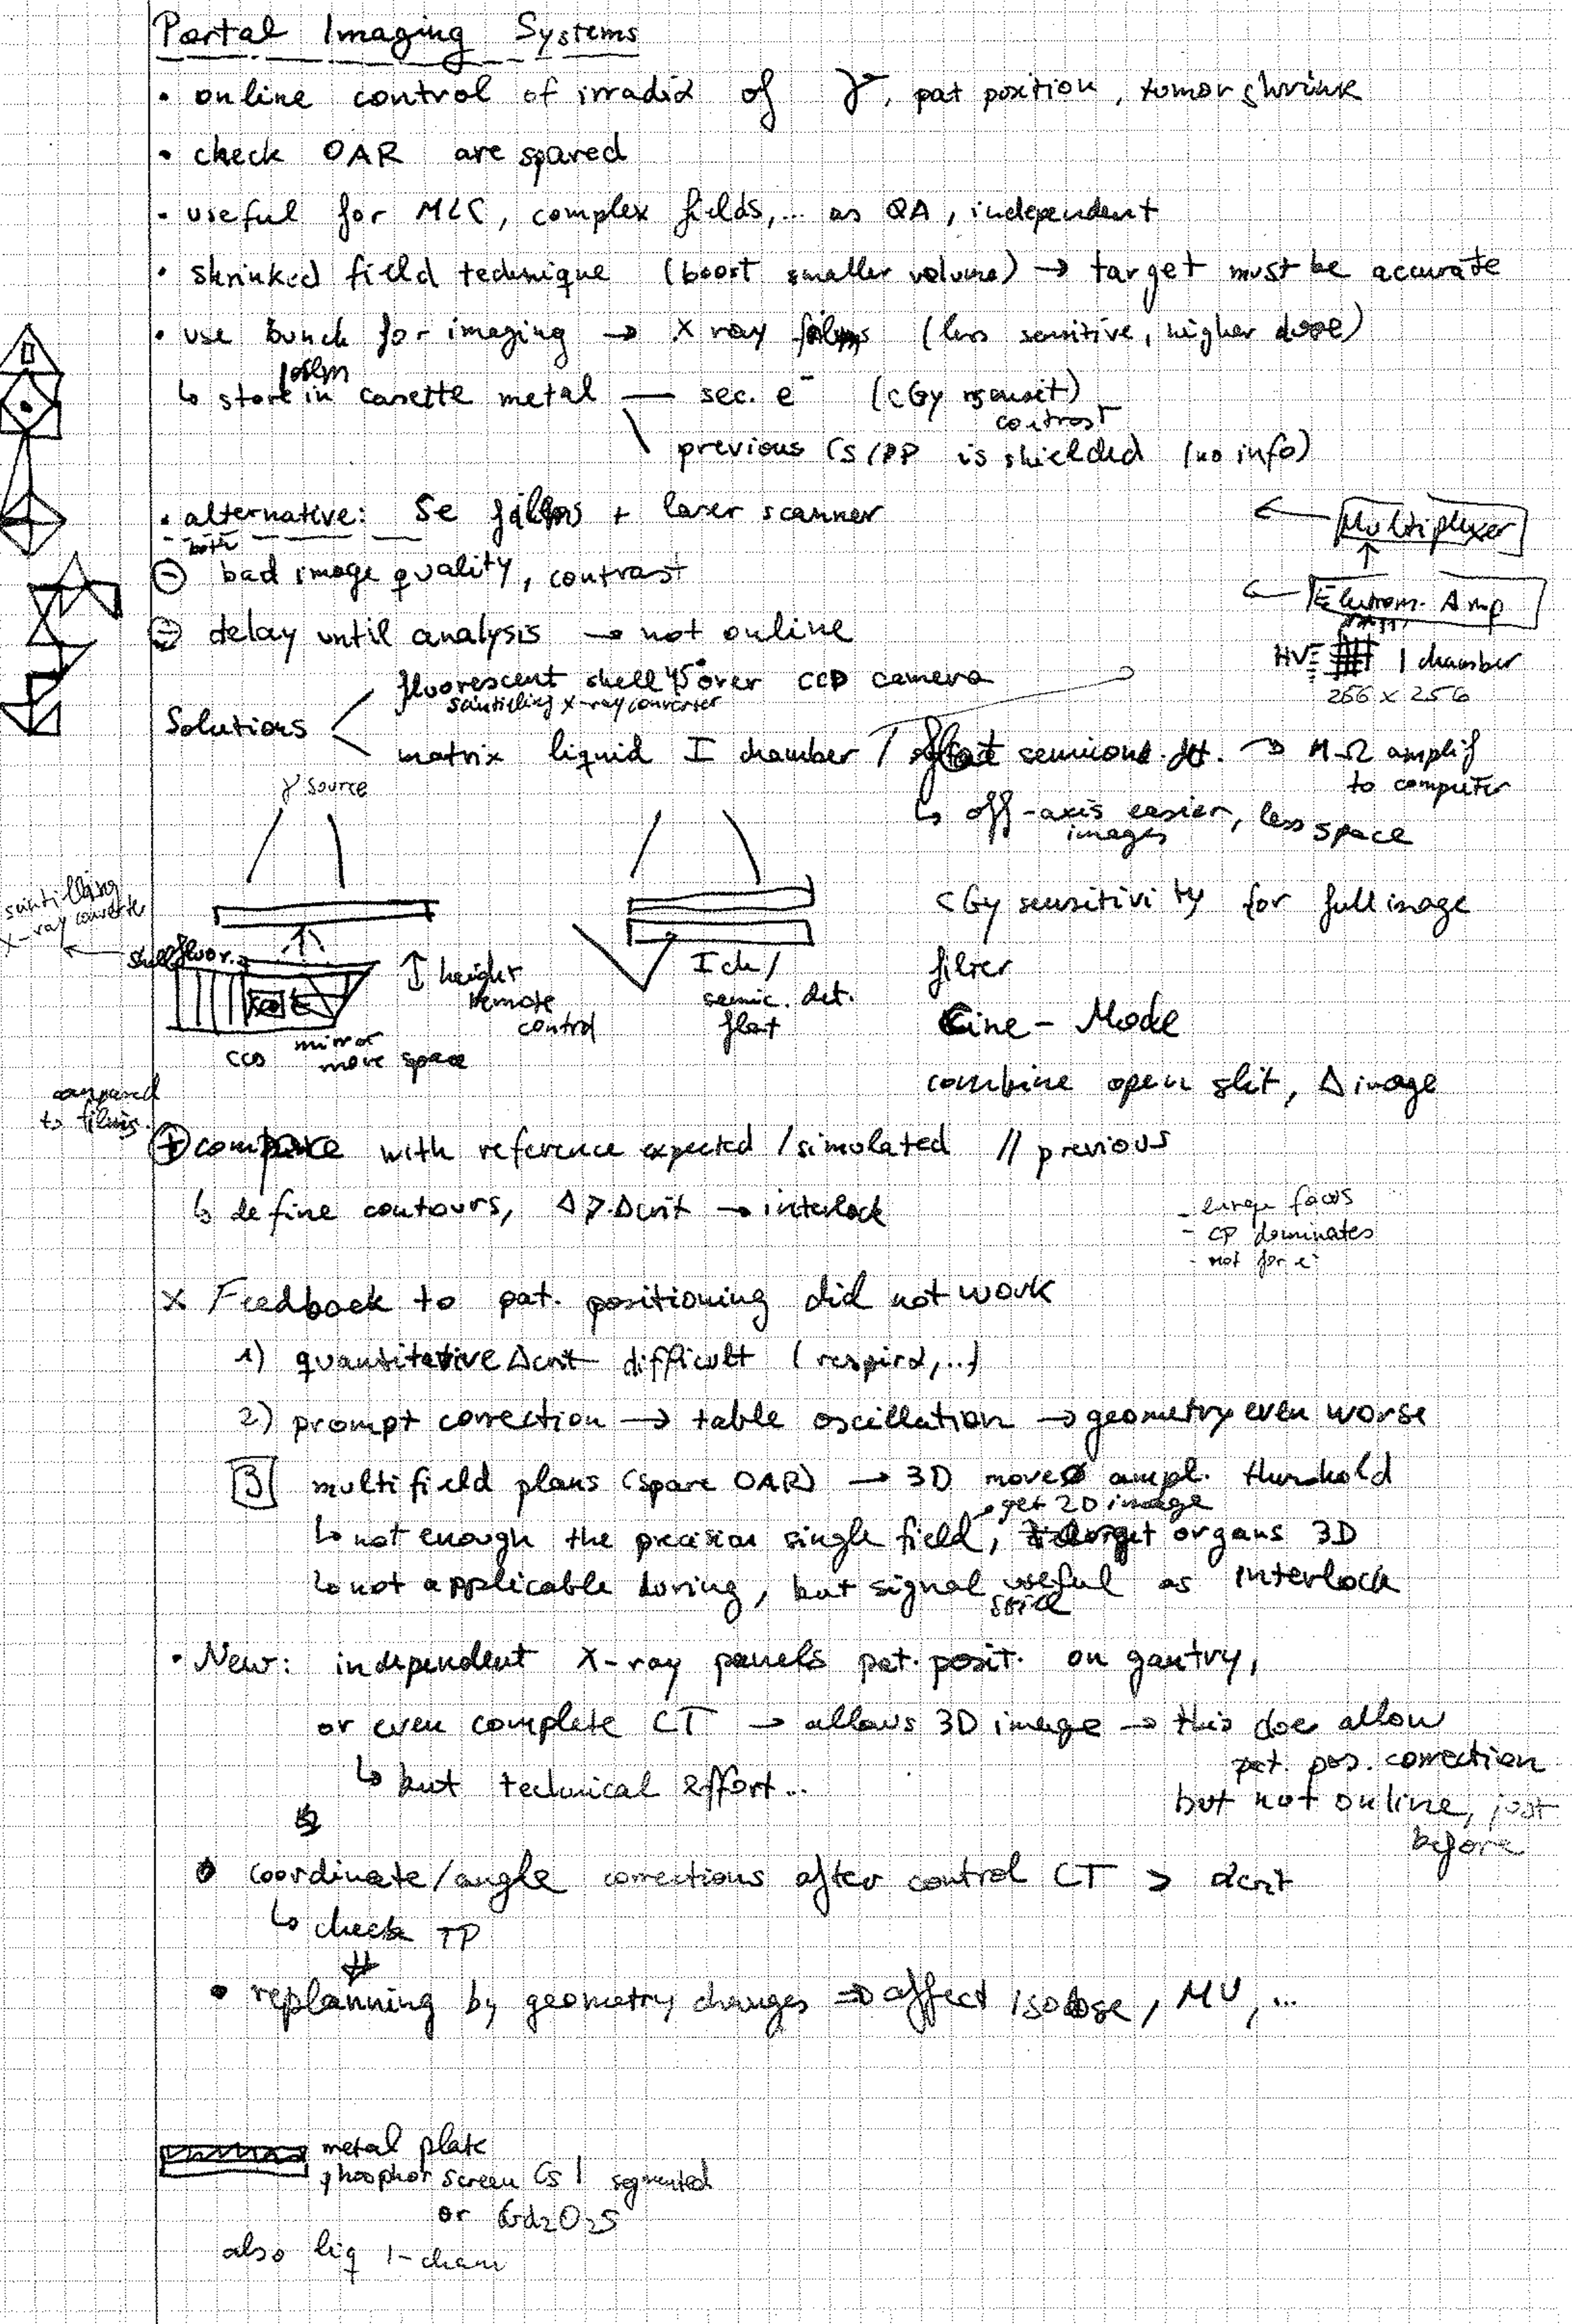 Portal Imaging Systems
• online control of irradiα of γ, pat position, tumor shrink
• check OAR are spared
• useful for MLC, complex fields,... as QA, independent
• shrinked field technique (boost smaller volume) → target must be accurate
• use bunch for imaging → X ray films (less sensitive, higher dose)
↳ store in casette metal — sec. e⁻ (cGy
contrast
previous CS/PP is shielded (no info)
• alternative: Se films + laser scanner
both
⊖ bad image quality, contrast
⊖ delay until analysis → not online
Multiplexer
Electrom. Amp
HV I chamber
256 x 256
Solutions
fluorescent shell 45° over CCD camera
scintilling x-ray converter
matrix liquid I chamber / flat semicond. det. → M-Ω amplif
to computer
↳ off-axis easier, less space
images
γ source
scintilling
x-ray converter
shell fluor.
↕ height
remote
control
CCD mirror
more space
I ch /
semic. det.
flat
cGy sensitivity for full image
filter
Cine-Mode
combine open slit, Δ image
compared
to films
⊕ compare with reference expected /simulated // previous
↳ define contours, Δ > Δcrit → interlock
- large focus
- CP dominates
- not for e⁻
x Feedback to pat. positioning did not work
1) quantitative Δcrit difficult (respirα,...)
2) prompt correction → table oscillation → geometry even worse
3 multifield plans (spare OAR) → 3D moves ampl. threshold
get 2D image
↳ not enough the precision single field, target organs 3D
↳ not applicable during, but signal useful as interlock
still
• New: independent X-ray panels pat. posit. on gantry,
or even complete CT → allows 3D image → this doe allow
pat. pos. correction
but not online, just
before
↳ but technical effort...
• coordinate/angle corrections after control CT > dcrit
↳ check TP
• replanning by geometry changes ⇒ affect isodose, MU, ...
metal plate
phosphor screen CsI segmented
or Gd₂O₂S
also liq I-cham